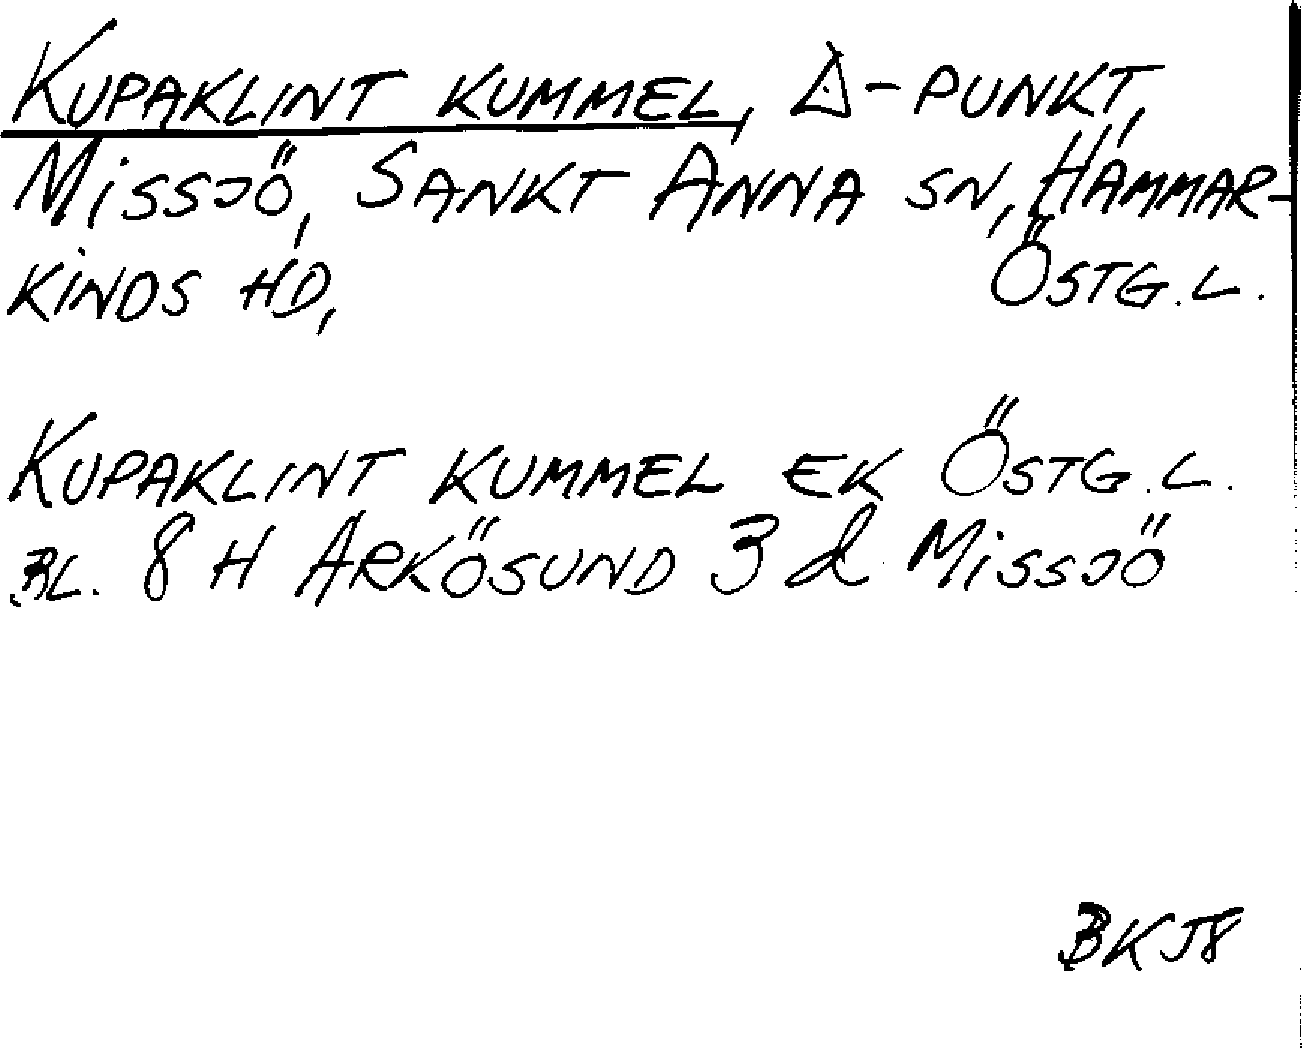 KUPAKLINT KUMMEL, △-PUNKT,
MISSJÖ, SANKT ANNA SN, HAMMAR-
KINDS HD, ÖSTG.L.
KUPAKLINT KUMMEL EK ÖSTG.L.
BL. 8 H ARKÖSUND 3 d MISSJÖ
BKJ8